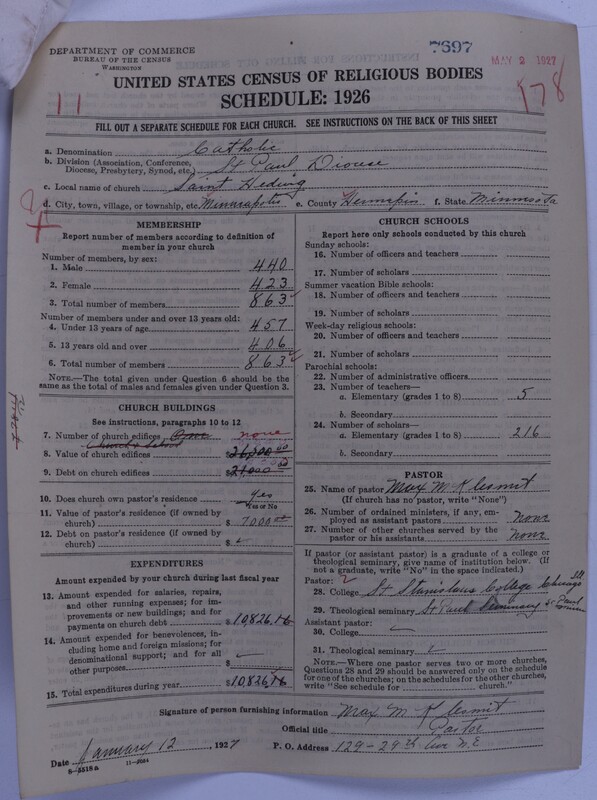 DEPARTMENT OF COMMERCE
BUREAU OF THE CENSUS
WASHINGTON
7697
MAY 2 1927
UNITED STATES CENSUS OF RELIGIOUS BODIES
SCHEDULE: 1926
11
178
FILL OUT A SEPARATE SCHEDULE FOR EACH CHURCH. SEE INSTRUCTIONS ON THE BACK OF THIS SHEET
a. Denomination Catholic
b. Division (Association, Conference, Diocese, Presbytery, Synod, etc.) St Paul Diocese
c. Local name of church Saint Hedwig
d. City, town, village, or township, etc. Minneapolis e. County Hennepin f. State Minnesota
MEMBERSHIP
Report number of members according to definition of
member in your church
Number of members, by sex:
1. Male 440
2. Female 423
3. Total number of members 863
Number of members under and over 13 years old:
4. Under 13 years of age 457
5. 13 years old and over 406
6. Total number of members 863
NOTE.—The total given under Question 6 should be
the same as the total of males and females given under Question 3.
CHURCH BUILDINGS
See instructions, paragraphs 10 to 12
7. Number of church edifices none
Church & School
8. Value of church edifices $
9. Debt on church edifices $
10. Does church own pastor's residence Yes
Yes or No
11. Value of pastor's residence (if owned by
church) $ 7000.00
12. Debt on pastor's residence (if owned by
church) $
EXPENDITURES
Amount expended by your church during last fiscal year
13. Amount expended for salaries, repairs,
and other running expenses; for im-
provements or new buildings; and for
payments on church debt $10,826.16
14. Amount expended for benevolences, in-
cluding home and foreign missions; for
denominational support; and for all
other purposes $
15. Total expenditures during year $10,826.16
CHURCH SCHOOLS
Report here only schools conducted by this church
Sunday schools:
16. Number of officers and teachers
17. Number of scholars
Summer vacation Bible schools:
18. Number of officers and teachers
19. Number of scholars
Week-day religious schools:
20. Number of officers and teachers
21. Number of scholars
Parochial schools:
22. Number of administrative officers
23. Number of teachers—
a. Elementary (grades 1 to 8) 5
b. Secondary
24. Number of scholars—
a. Elementary (grades 1 to 8) 216
b. Secondary
PASTOR
25. Name of pastor Max M Klesmit
(If church has no pastor, write "None")
26. Number of ordained ministers, if any, em-
ployed as assistant pastors none
27. Number of other churches served by the
pastor or his assistants none
If pastor (or assistant pastor) is a graduate of a college or
theological seminary, give name of institution below. (If
not a graduate, write "No" in the space indicated.)
Pastor:
28. College St Stanislaus College Chicago Ill
29. Theological seminary St Paul Seminary St Paul
Assistant pastor:
30. College
31. Theological seminary
NOTE.—Where one pastor serves two or more churches,
Questions 28 and 29 should be answered only on the schedule
for one of the churches; on the schedules for the other churches,
write "See schedule for church."
Signature of person furnishing information Max M Klesmit
Official title Pastor
Date January 12, 1927 P. O. Address 129-29th Ave N.E
8-5518a 11-8684